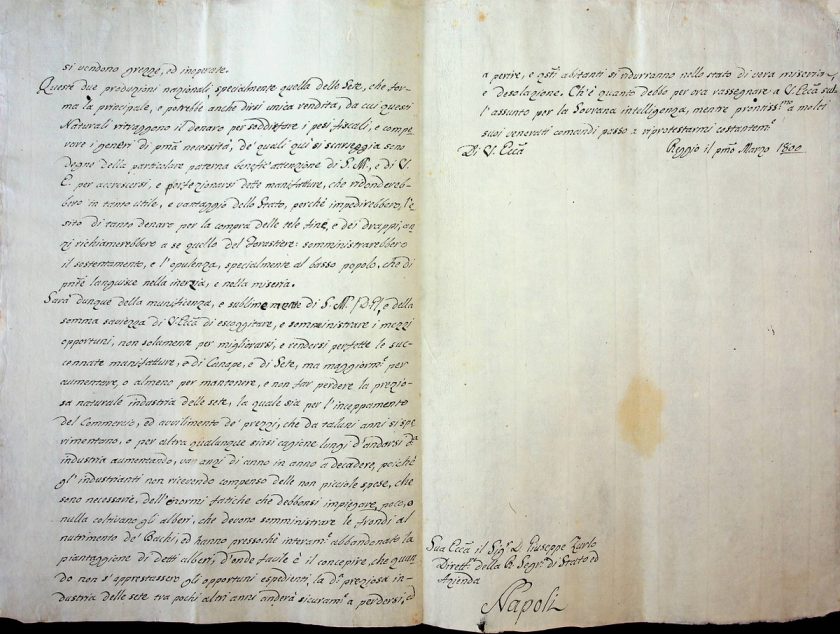 si vendono grezze, ed inoperate.
Queste due produzioni nazionali, specialmente quella delle Sete, che for-
ma la principale, e potrebbe anche dirsi unica rendita, da cui questi
Naturali ritraggono il denaro per soddisfare i pesi fiscali, e compe-
rare i generi di pma necessità, de' quali quì si scarseggia sono
degne della particolare paterna benefic.a attenzione di S. M., e di V.
E. per accrescersi, e perfezionarsi dette manifatture, che ridondereb-
bero in tanto utile, e vantaggio dello Stato, perchè impedirebbero, l'e-
sito di tanto denaro per la compra delle tele fine, e dei drappi, an-
zi richiamerebbero a se quello del Forastiere: somministrarebbero
il sostentamento, e l'opulenza, specialmente al basso popolo, che di
pnte languisce nella inerzia, e nella miseria.
Sarà dunque della munificenza, e sublime mente di S. M. e della
somma saviezza di V. Ecca di escogitare, e somministrare i mezzi
opportuni, non solamente per migliorarsi, e rendersi perfette le suc-
cennate manifatture, e di Canape, e di Sete, ma maggiorm.e per
aumentare, o almeno per mantenere, e non far perdere la prezio-
sa naturale industria delle sete, la quale sia per l'inceppamento
del Commercio, ed avvilimento de' prezzi, che da taluni anni si spe-
rimentano, o per altra qualunque siasi cagione lungi d'andarsi d.a
industria aumentando, van anzi di anno in anno a decadere, poichè
gl'industrianti non ricevendo compenso delle non picciole spese, che
sono necessarie, dell'enormi fatiche che debbonsi impiegare, poco, o
nulla coltivano gli alberi, che devono somministrare le frondi al
nutrimento de' Bachi, ed hanno pressochè interam.e abbandonato la
piantaggione di detti alberi, d'onde facile è il concepire, che quan-
do non s'apprestassero gli opportuni espedienti, la d.a preziosa in-
dustria delle sete tra pochi altri anni anderà sicuram.e a perdersi, ed
a perire, e qsti abitanti si ridurranno nello stato di vera miseria,
e desolazione. Ch'è quanto debbo per ora rassegnare a V. Ecca sul-
l'assunto per la Sovrana intelligenza, mentre prontiss.mo a molti
suoi venerati comandi passo a riprotestarmi costantem.e
Di V. Ecca Reggio il pmo Marzo 1800
Sua Ecca il Sigr D. Giuseppe Zurlo
Dirett.re della Rl Segria di Stato ed
Azienda
Napoli